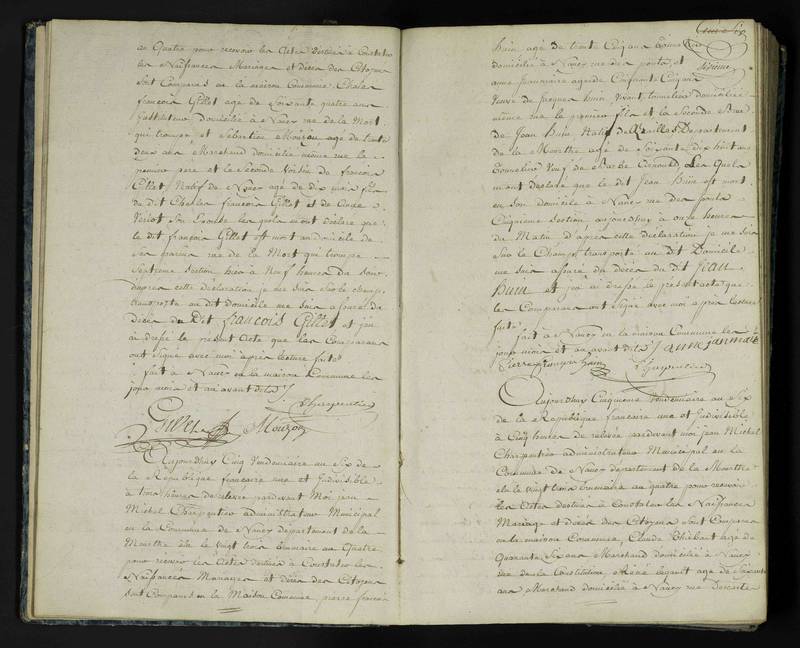 au Quatre pour recevoir les Actes destinés à Constater
les Naissances Mariages et décès des Citoyens
sont Comparus en la maison Commune Charles
françois Gillet agé de Soixante quatre ans
Instituteur domicilié à Nancy rue de la Mort
qui trompe et Sébastien Mouzon agé de trente
deux ans Marchand domicilié même rue le
premier pere et le Second de françois
Gillet Natif de Nancy agé de dix mois fils
de dit Charles françois Gillet et de Anne
Son Epouse les quels m'ont déclaré que
le dit françois Gillet est mort au domicile de
Ses parens rue de la Mort qui trompe
Section hier à Neuf heures du Soir
d'après cette déclaration je me suis sur le champ
transporté au dit domicile me suis assuré du
Décès du Dit françois Gillet et j'ai
dressé le présent Acte que les Comparans
ont Signé avec moi après lecture faite
fait à Nancy en la maison Commune les
jour mois et an avant dits
Charpentier
Gillet Mouzon
Aujourd'huy Cinq Vendemiaire au Six de
la République française une et Indivisible
à trois heures de relevée pardevant Moi jean
Michel Charpentier administrateur Municipal
en la Commune de Nancy département de la
Meurthe élu le vingt trois Brumaire au Quatre
pour recevoir les Actes destinés à Constater les
Naissances Mariages et décès des Citoyens
sont Comparus en la Maison Commune pierre françois
hain agé de trente Cinq ans Tonnelier
domicilié à Nancy rue des ponts et
anne agée de Cinquante Cinq ans
Veuve de Jacques hain vivant tonnelier domiciliée
même rue le premier fils et la Seconde Brue
de Jean Hain Natif de Département
de la Meurthe agé de Soixante dix huit ans
Tonnelier Veuf de Barbe Les quels
m'ont déclaré que le dit Jean Hain est mort
en son domicile à Nancy rue des ponts
Cinquieme Section aujourd'huy à onze heures
du Matin d'après cette déclaration je me suis
Sur le Champ transporté au dit Domicile
me suis assuré du décès du dit Jean
Hain et j'ai dressé le present acte que
les Comparans ont Signé avec moi après lecture
faite
fait à Nancy en la maison Commune les
jour mois et an avant dits
Pierre françois hain Charpentier
Aujourd'huy Cinquieme Vendemiaire au Six
de la République française une et Indivisible
à Cinq heures de relevée pardevant moi jean Michel
Charpentier administrateur Municipal en la
Commune de Nancy département de la Meurthe
élu le vingt trois brumaire au quatre pour recevoir
les Actes destinés à Constater les Naissances
Mariages et décès des Citoyens sont Comparus
en la maison Commune, Claude Thiebaut agé de
Quarante Six ans Marchand domicilié à Nancy
rue de la Constitution, René agé de Soixante
ans Marchand domicilié à Nancy rue